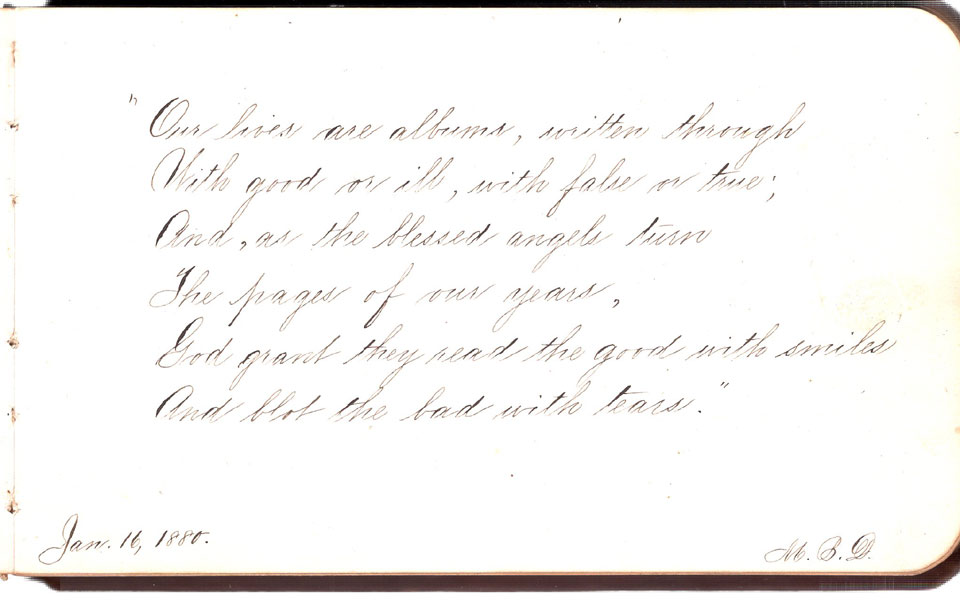 "Our lives are albums, written through
With good or ill, with false or true;
And, as the blessed angels turn
The pages of our years,
God grant they read the good with smiles
And blot the bad with tears."
Jan. 16, 1880.
M. B. D.